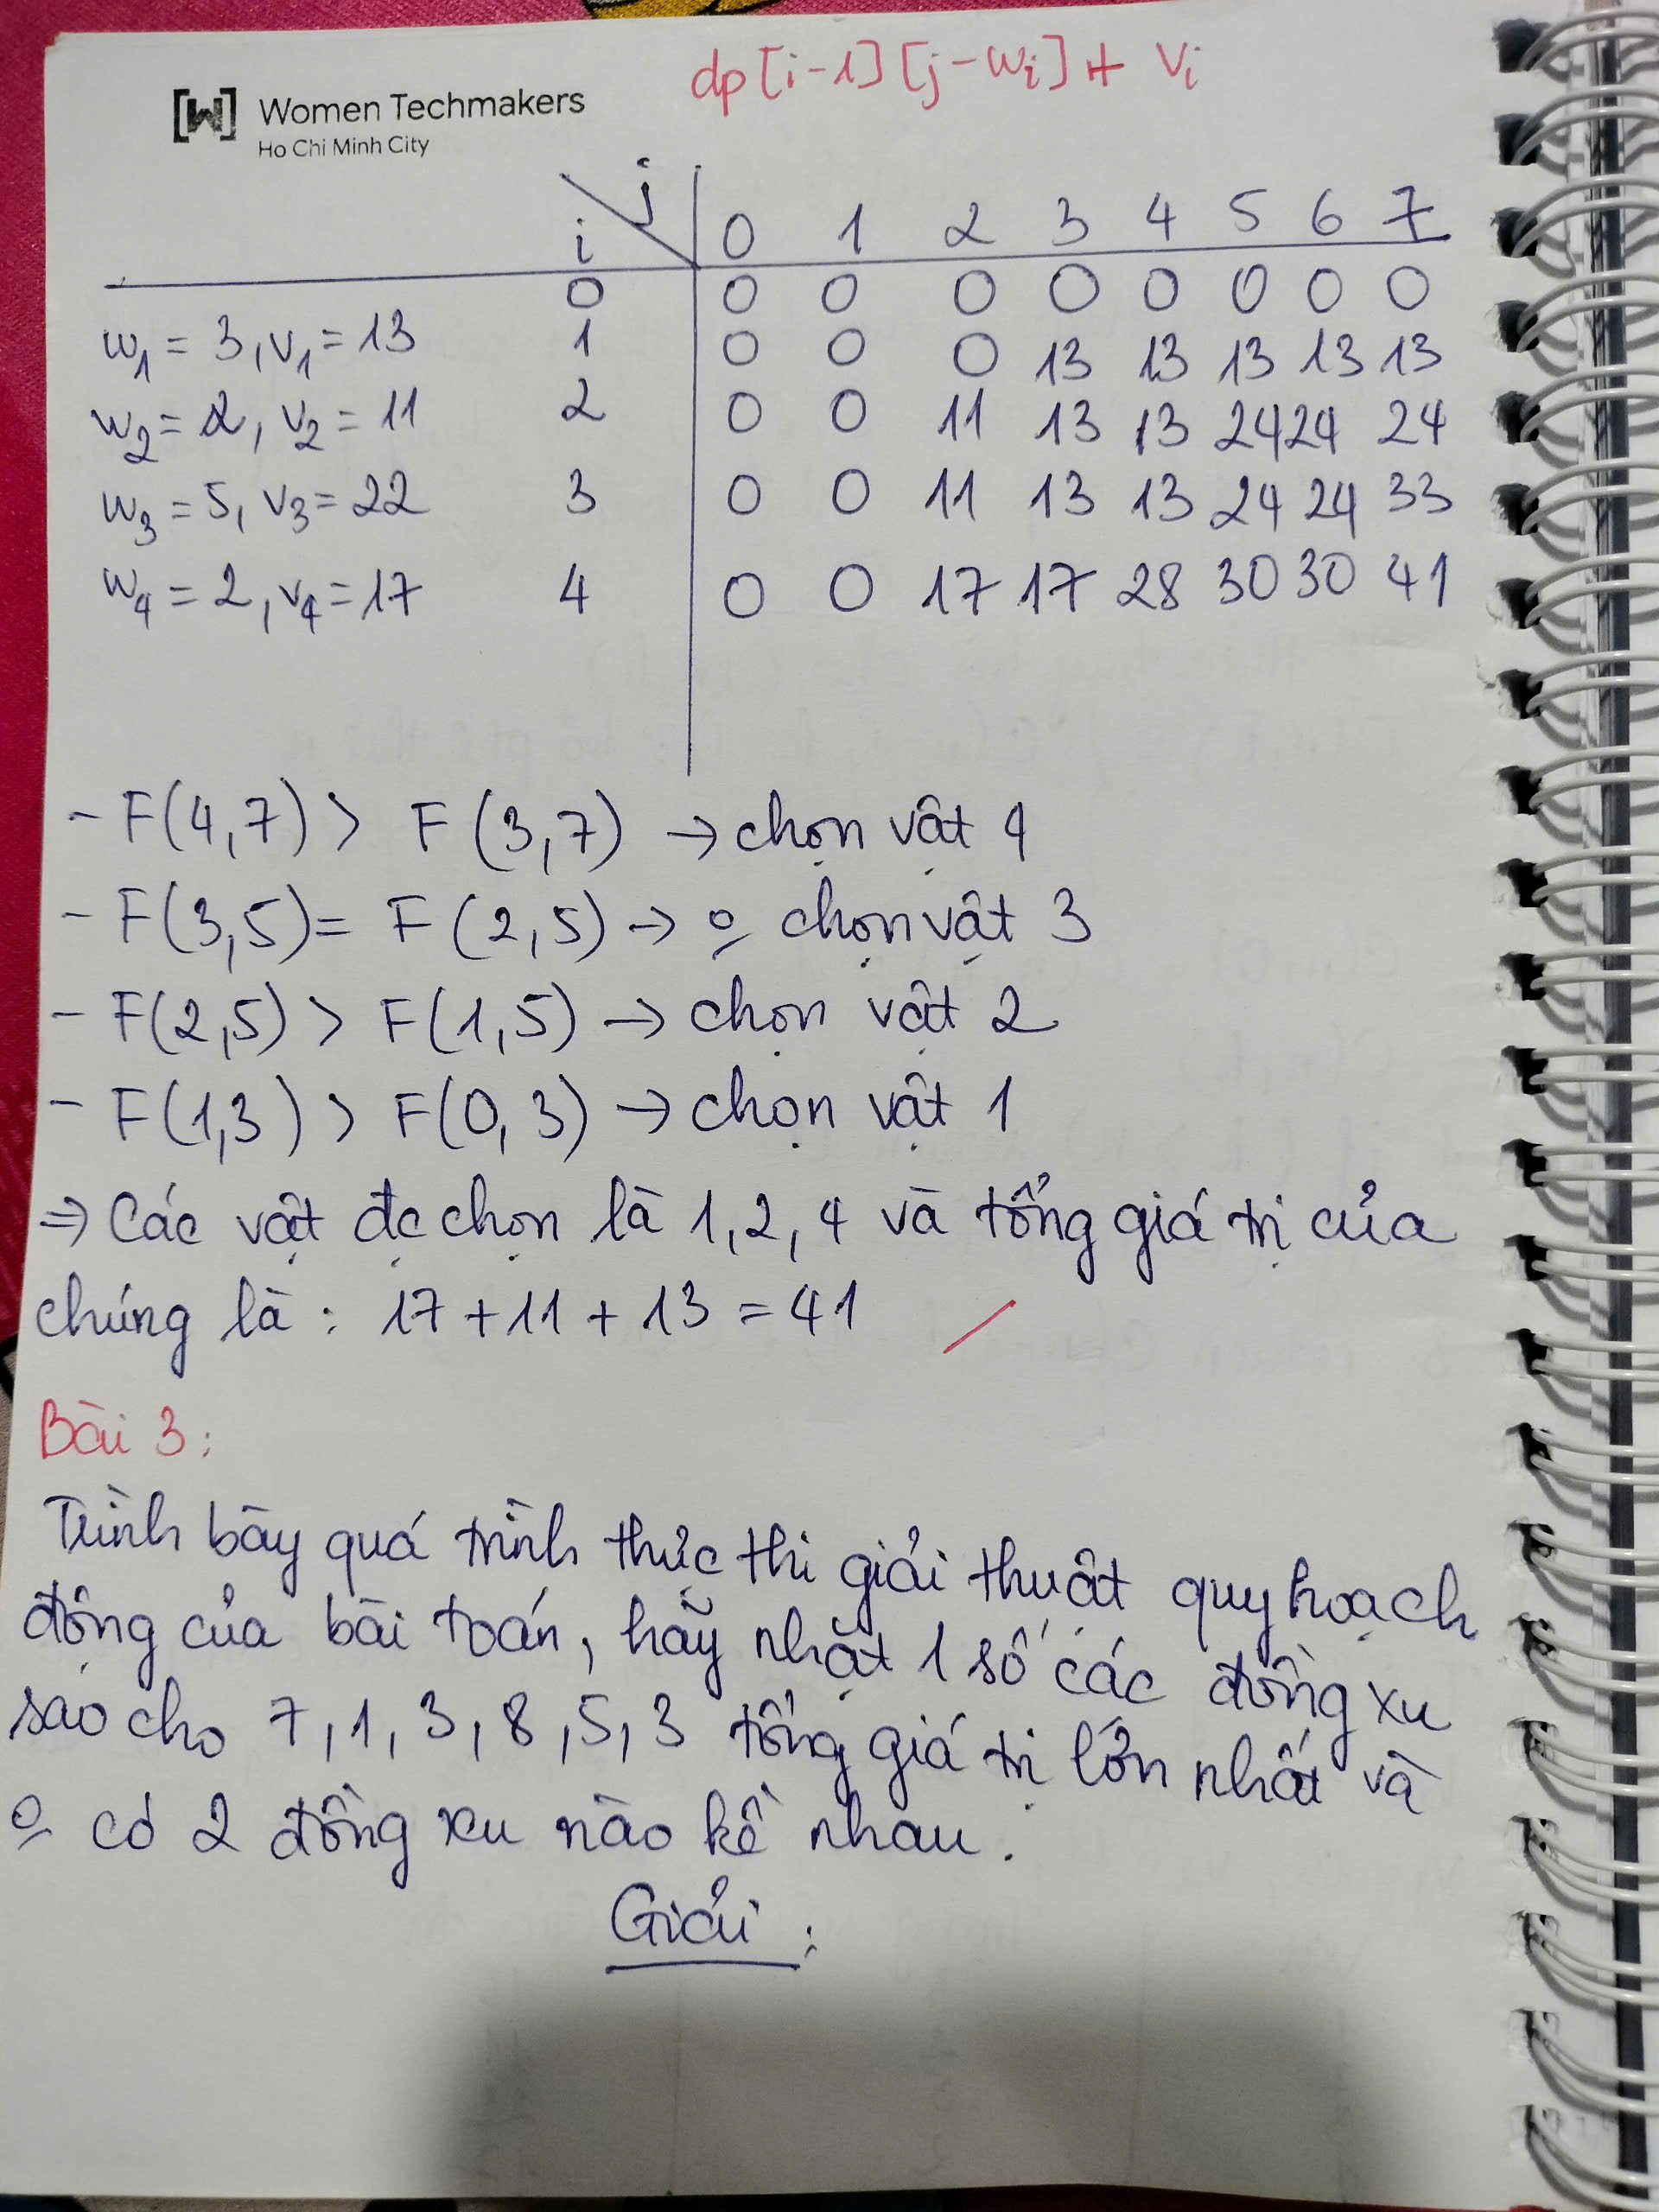 dp[i-1][j-wi] + vi
[W] Women Techmakers
Ho Chi Minh City
i \ j 0 1 2 3 4 5 6 7
0 0 0 0 0 0 0 0 0
w1 = 3, v1 = 13 1 0 0 0 13 13 13 13 13
w2 = 2, v2 = 11 2 0 0 11 13 13 24 24 24
w3 = 5, v3 = 22 3 0 0 11 13 13 24 24 33
w4 = 2, v4 = 17 4 0 0 17 17 28 30 30 41
- F(4,7) > F(3,7) → chọn vật 4
- F(3,5) = F(2,5) → o chọn vật 3
- F(2,5) > F(1,5) → chọn vật 2
- F(1,3) > F(0,3) → chọn vật 1
⇒ Các vật đc chọn là 1, 2, 4 và tổng giá trị của
chúng là : 17 + 11 + 13 = 41
Bài 3:
Trình bày quá trình thức thi giải thuật quy hoạch
động của bài toán, hãy nhặt 1 số các đồng xu
sao cho 7, 1, 3, 8, 5, 3 tổng giá trị lớn nhất và
o có 2 đồng xu nào kề nhau.
Giải :